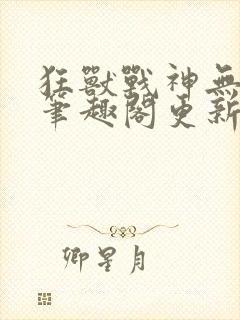 狂獸戰神無
筆趣閣更新
卿星月